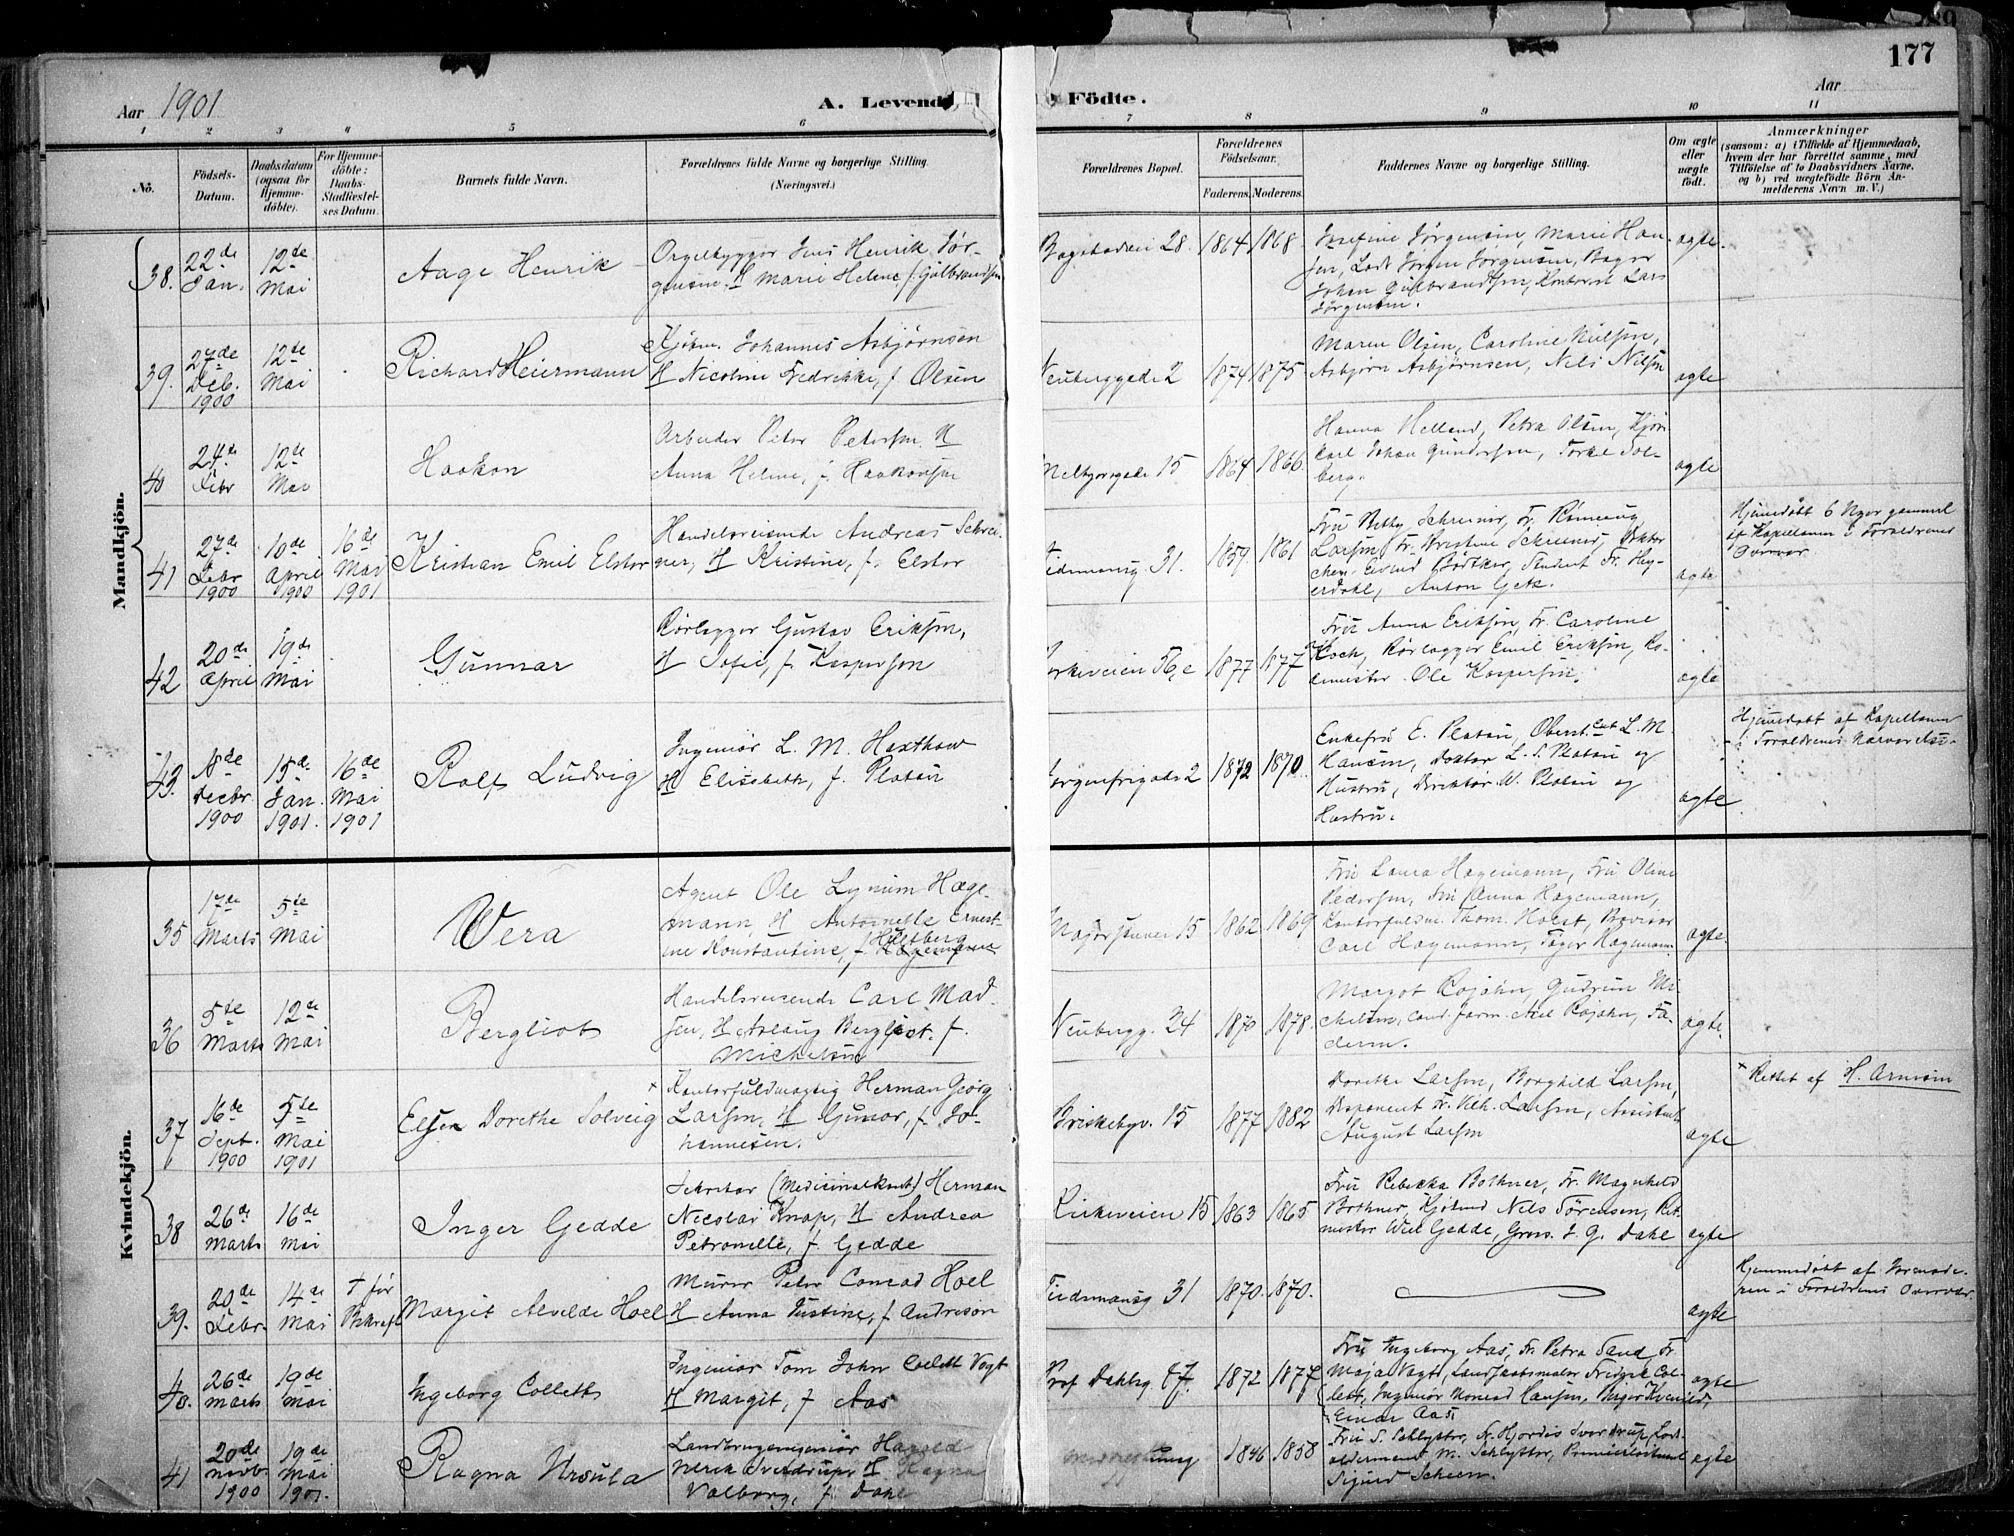 189
177
Aar 1901
A. Levende Födte.
Aar
1 2 3 4 5 6 7 8 9 10 11
No.
Födsels-Datum.
Daabsdatum (ogsaa for Hjemme-döbte).
For Hjemme-döbte: Daabs-Stadfæstel-ses Datum.
Barnets fulde Navn.
Forældrenes fulde Navne og borgerlige Stilling.
(Næringsvei.)
Forældrenes Bopæl.
Forældrenes Födselsaar.
Faderens. Moderens.
Faddernes Navne og borgerlige Stilling.
Om ægte eller uægte födt.
Anmærkninger
(saasom: a) i Tilfælde af Hjemmedaab,
hvem der har forrettet samme, med
Tilföielse af to Daabsvidners Navne,
og b) ved uægtefödte Börn An-
melderens Navn m. V.)
Mandkjön.
38. 22de Jan. 12te Mai
Aage Henrik
Orgelbygger Jens Henrik Jør-
gensen, H Marie Helene, f. Gulbrandsen
Bogstadveien 28. 1864 1868
Josefine Jørgensen, Marie Han-
sen, Lods Jørgen Jørgensen, Bager
Johan Gulbrandsen, Kontorist Lars
Jørgensen.
ægte.
39. 27de Deb. 1900 12te Mai
Richard Heiermann
Kjøbm. Johannes Asbjørnsen
H Nicoline Fredrikke, f. Olsen
Neuberggade 2 1874 1875
Maren Olsen, Caroline Nielsen,
Asbjørn Asbjørnsen, Nils Nilsen
ægte
40 24de Febr 12te Mai
Haakon
Arbeider Peter Petersen, H
Anna Helene, f. Haakonsen
15 1864 1866.
Hanna Helland, Petra Olsen, Kjør
Carl Johan Gundersen, Torkel Sol-
berg.
ægte
41 27de Febr 1900 10de April 1900 16de Mai 1901
Kristian Emil Elstor
Handelsreisende Andreas Schrei-
ner, H Kristine, f. Elstor
Tidemansg. 31. 1859. 1861
Fru Bethy Schreiner, Fr. Rømaug
Larsen, Fr. Kristine Schreiner, Doktor
chem. Eivind Bødtker, Student Fr. Hey-
erdahl, Anton Getz.
ægte
Hjemmedøbt 6 Uger gammel
af Kapellanen i Forældrenes
Overvær
42 20de April 19de Mai
Gunnar
Rørlægger Gustav Eriksen,
H Sofie, f. Kaspersen
Kirkeveien 56c 1877 1877
Fru Anna Eriksen, Fr. Caroline
Koch, Rørlægger Emil Eriksen, Ro-
demester Ole Kaspersen.
ægte
43. 18de Decbr. 1900 15de Jan. 1901. 16de Mai 1901
Rolf Ludvig
Ingeniør L. M. Haxthow
H Elisabeth, f. Platou
Sorgenfrigade 2 1872 1870
Enkefru E. Platou, Oberst L. M.
Hansen, Doktor L. S. Platou og
Hustru, Direktør W. Platou og
Hustru.
ægte
Hjemmedøbt af Kapellanen
i Forældrenes Nærvær
Kvindekjön.
35 17de Marts 5te Mai
Vera
Agent Ole Lynum Hage-
mann, H Antoinette Ernest-
ine Konstantine, f. Hultberg
Majorstuvei 15 1862 1869
Fru Laura Hagemann, Fru Oline
Pedersen, Fru Anna Hagemann,
Kontorfuldm. Thom. Holst, Bogvær
Carl Hagemann, Tøger Hagemann
ægte.
36 5te Marts 12te Mai
Bergliot
Handelsreisende Carl Mad-
sen, H Aslaug Bergliot. f.
Michelsen
Neubergg. 24 1870 1878.
Margot Rojahn, Gudrun Mi-
chelsen, Cand. farm. Axel Rojahn, Fa-
deren.
ægte.
37 16de Sept. 1900 5te Mai 1901
Elsen Dorethe Solveig
× Kontorfuldmægtig Herman Georg
Larsen, H Gunvor, f. Jo-
hannesen.
Briskebyv. 15 1877 1882
Dorethe Larsen, Borghild Larsen,
Disponent Fr. Vilh. Larsen, Assistent
August Larsen
ægte
× Rettet af H. Arnesen
38 26de Marts 16de Mai
Inger Gedde
Sekretær (Medicinalkont) Herman
Nicolai Knap, H Andrea
Petronelle, f. Gedde
Kirkeveien 15 1863 1865
Fru Rebekka Bothner, Fr. Magnhild
Bothner, Kjøbmd Nils Sørensen, Rit-
mester Wiel Gedde, Gros. J. G. Dahl
ægte
39. 20de Febr. 14de Mai † før Bekræft
Margit Alvilde Hoel
Murer Peter Conrad Hoel
H Anna Justine, f. Andreson
Tidemansg 31 1870. 1870.
ægte
Hjemmedøbt af Jormode-
ren i Forældrenes Overvær.
40. 26de Marts 19de Mai
Ingeborg Collett
Ingeniør Tom John Collett Vogt
H Margit, f. Aas
Prof Dahlsg 47. 1872 1877
Fru Ingeborg Aas, Fr. Petra Sand, Fr.
Maja Vogt, Landskabsmaler Fridtjof Col-
lett, Ingeniør Konrad Hansen, Birger Kvenild,
Einar Aas.
ægte
41 20de Novbr 1900 19de Mai 1901.
Ragna Ursula
Landbrugsingeniør Harald
Ulrik Sverdrup, H Ragna
Valborg, f. Dahl
1846 1858
Fru S. Schlytter, Fr. Hjørdis Sverdrup, Lods-
oldermand M. Schlytter, Premierløitnant
Sigurd Scheen.
ægte